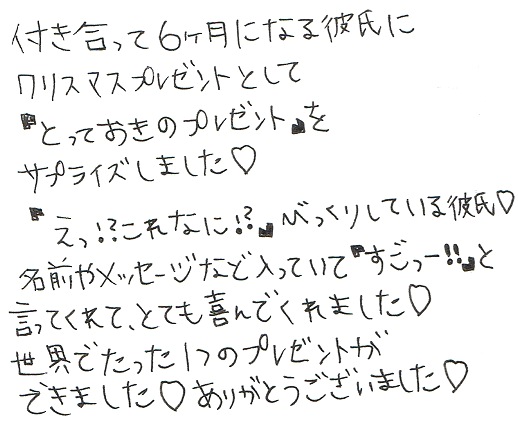 付き合って6ヶ月になる彼氏に
クリスマスプレゼントとして
『とっておきのプレゼント』を
サプライズしました♡
『えっ!?これなに!?』びっくりしている彼氏♡
名前やメッセージなど入っていて『すごっー!!』と
言ってくれて、とても喜んでくれました♡
世界でたった1つのプレゼントが
できました♡ありがとうございました♡